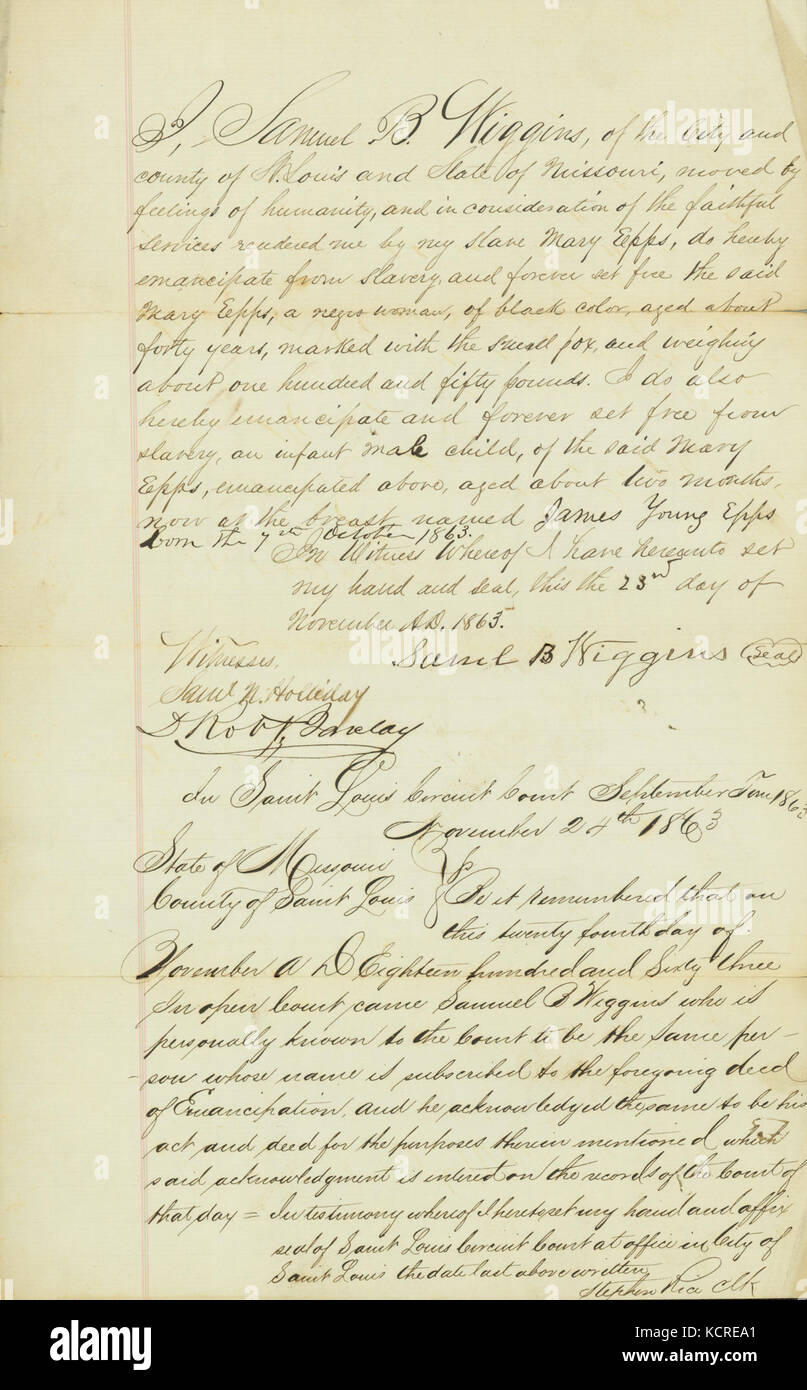 I, Samuel B. Wiggins, of the City and
county of St. Louis and State of Missouri, moved by
feelings of humanity, and in consideration of the faithful
services rendered me by my slave Mary Epps, do hereby
emancipate from slavery, and forever set free the said
Mary Epps, a negro woman, of black color, aged about
forty years, marked with the small pox, and weighing
about one hundred and fifty pounds. I do also
hereby emancipate and forever set free from
slavery, an infant male child, of the said Mary
Epps, emancipated above, aged about two months,
now at the breast named James Young Epps
born the 7th October 1863.
In Witness Whereof I have hereunto set
my hand and seal, this the 23rd day of
November A.D. 1863.
Saml B Wiggins (Seal)
Witnesses.
Saml N. Holliday
D Robt Barclay
In Saint Louis Circuit Court September Term 1863
November 24th 1863
State of Missouri
County of Saint Louis } SS
Be it remembered that on
this twenty fourth day of
November A D Eighteen hundred and Sixty three
In open Court came Samuel B Wiggins who is
personally known to the Court to be the same per-
-son whose name is subscribed to the foregoing deed
of Emancipation. and he acknowledged the same to be his
act and deed for the purposes therein mentioned which
said acknowledgment is entered on the records of the Court of
that day = In testimony whereof I hereto set my hand and affix
seal of Saint Louis Circuit Court at office in City of
Saint Louis the date last above written
Stephen Rice Clk
alamy
Image ID: KCREA1
www.alamy.com
a alamy stock photo